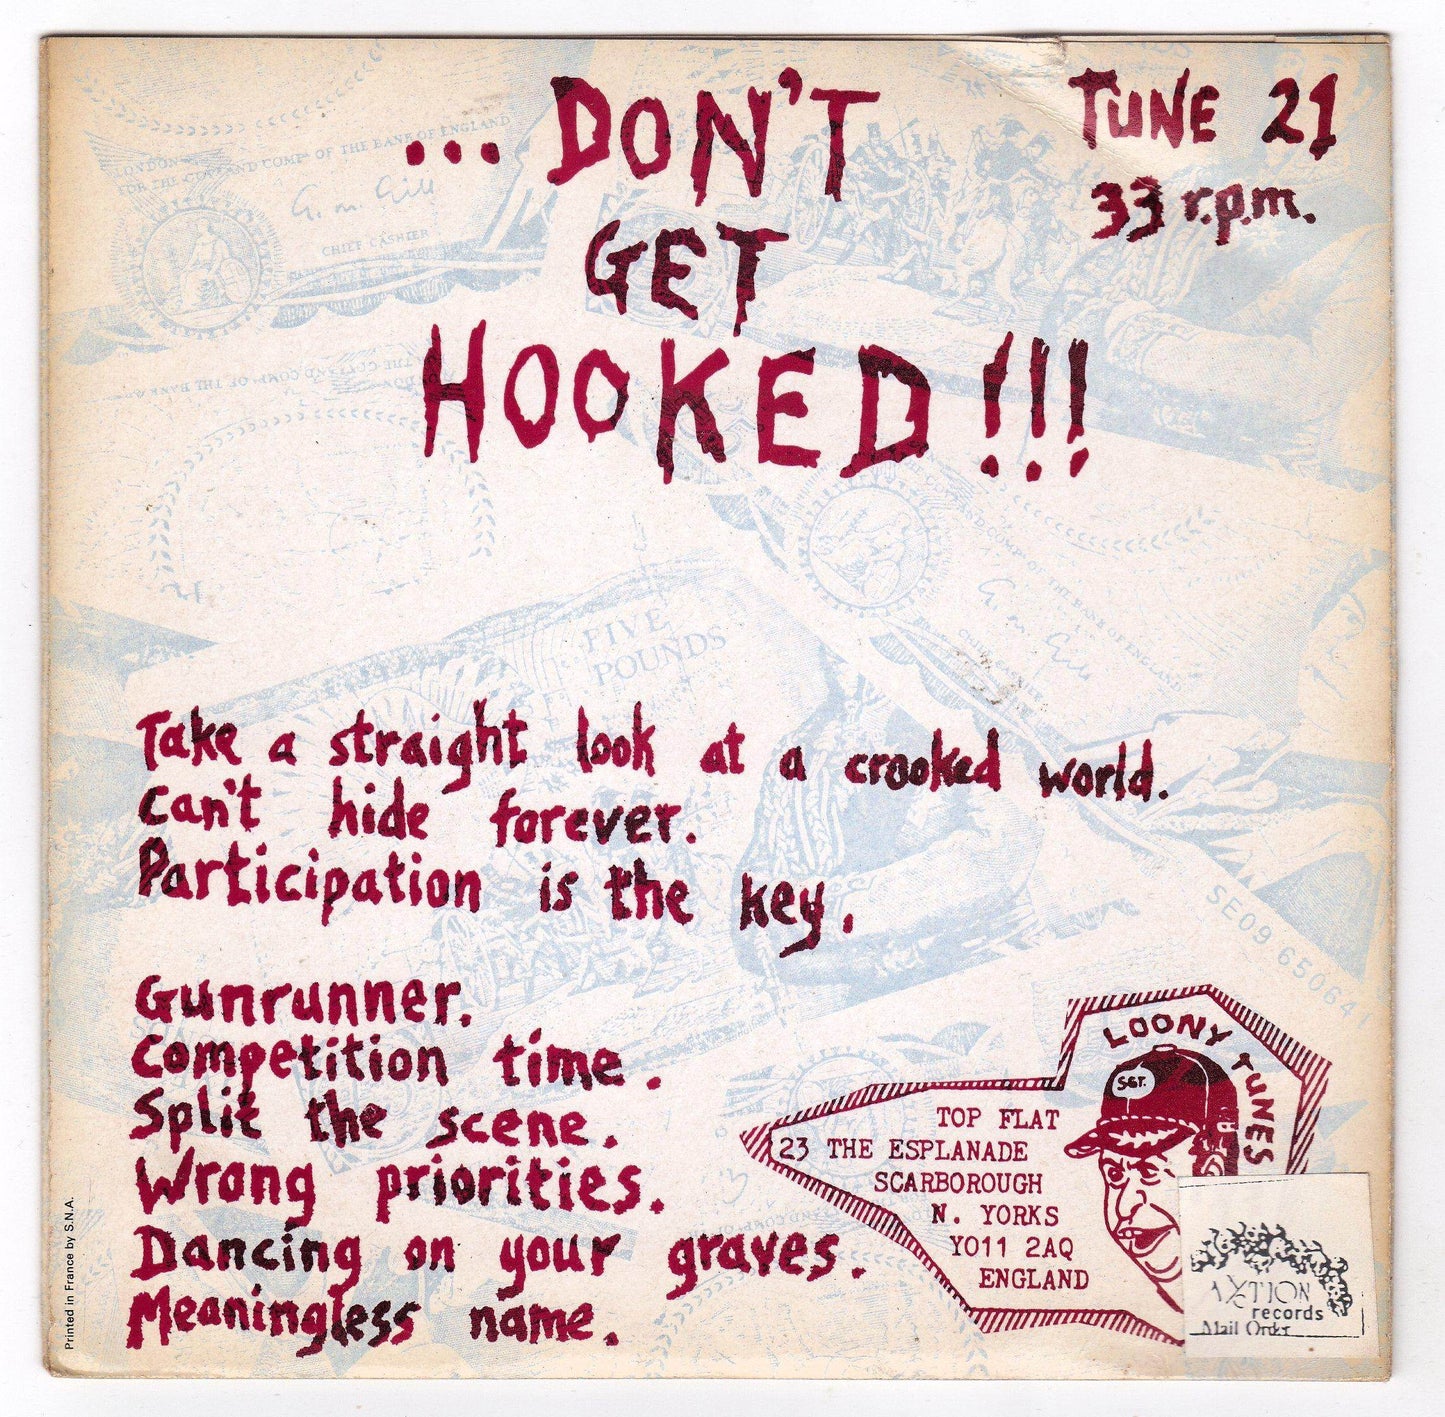 ... DON'T
GET
HOOKED!!!
TUNE 21
33 r.p.m.
LONDON
FOR THE GOV AND COMP^A OF THE BANK OF ENGLAND
G. M. Gill
CHIEF CASHIER
FIVE
POUNDS
THE GOV AND COMP^A OF THE BANK OF ENGLAND
G. M. Gill
CHIEF CASHIER
Take a straight look at a crooked world.
can't hide forever.
Participation is the key.
SE09 650641
Gunrunner.
Competition time.
Split the scene.
Wrong priorities.
Dancing on your graves.
Meaningless name.
LOONY TUNES
SGT.
TOP FLAT
23 THE ESPLANADE
SCARBOROUGH
N. YORKS
YO11 2AQ
ENGLAND
AXTION
records
Mail Order
Printed in France by S.N.A.